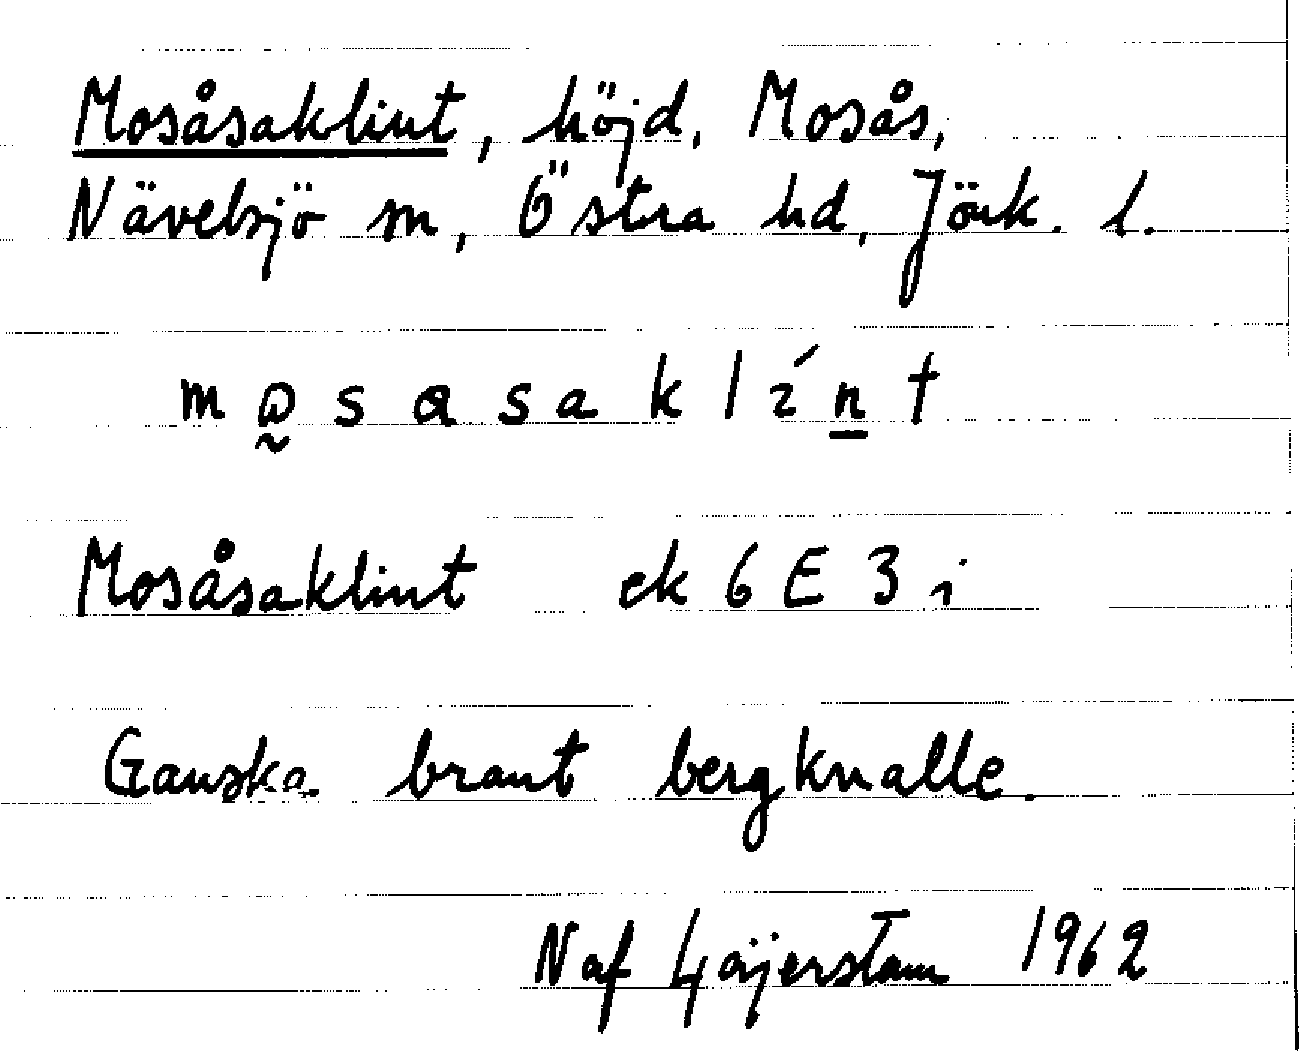 Mosåsaklint, höjd, Mosås,
Nävelsjö sn, Östra hd, Jönk. l.
Mosåsaklint ek 6 E 3 i
Ganska brant bergknalle.
Naf Göjerstam 1962